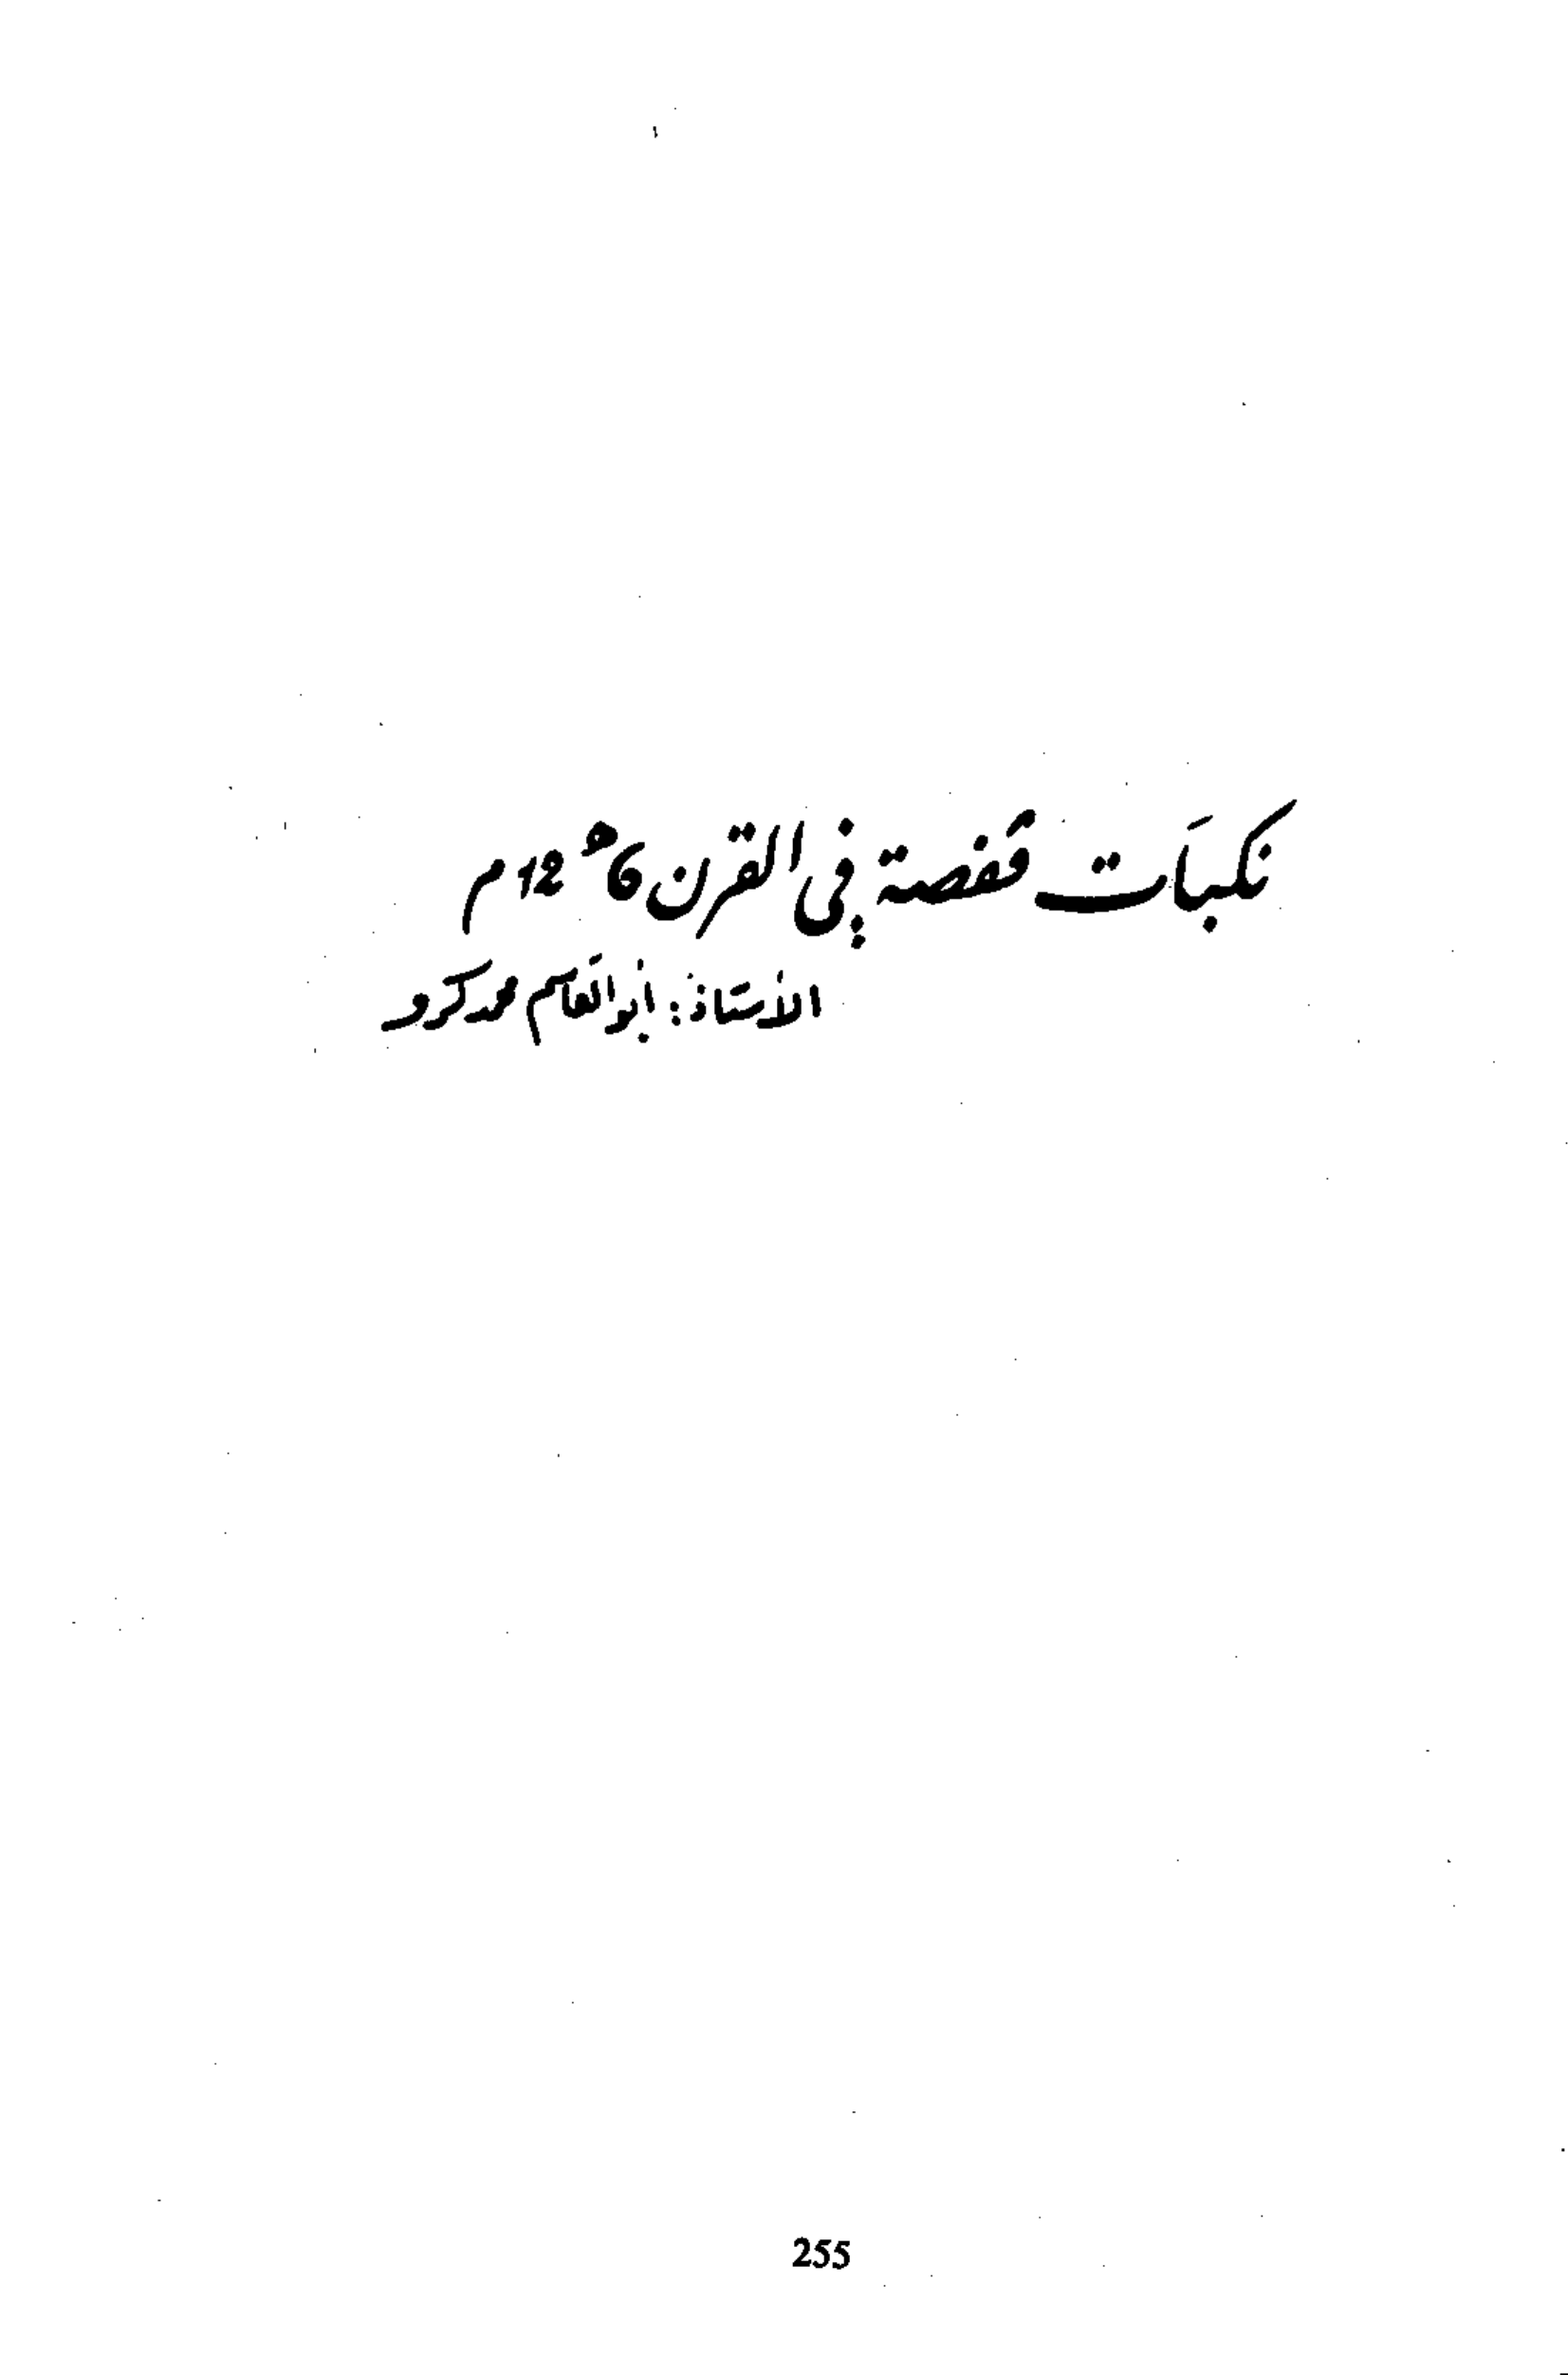 نكبات قفصة في القرن 6هـ 12م
الأستاذ: أبو القاسم محمد كرو
255